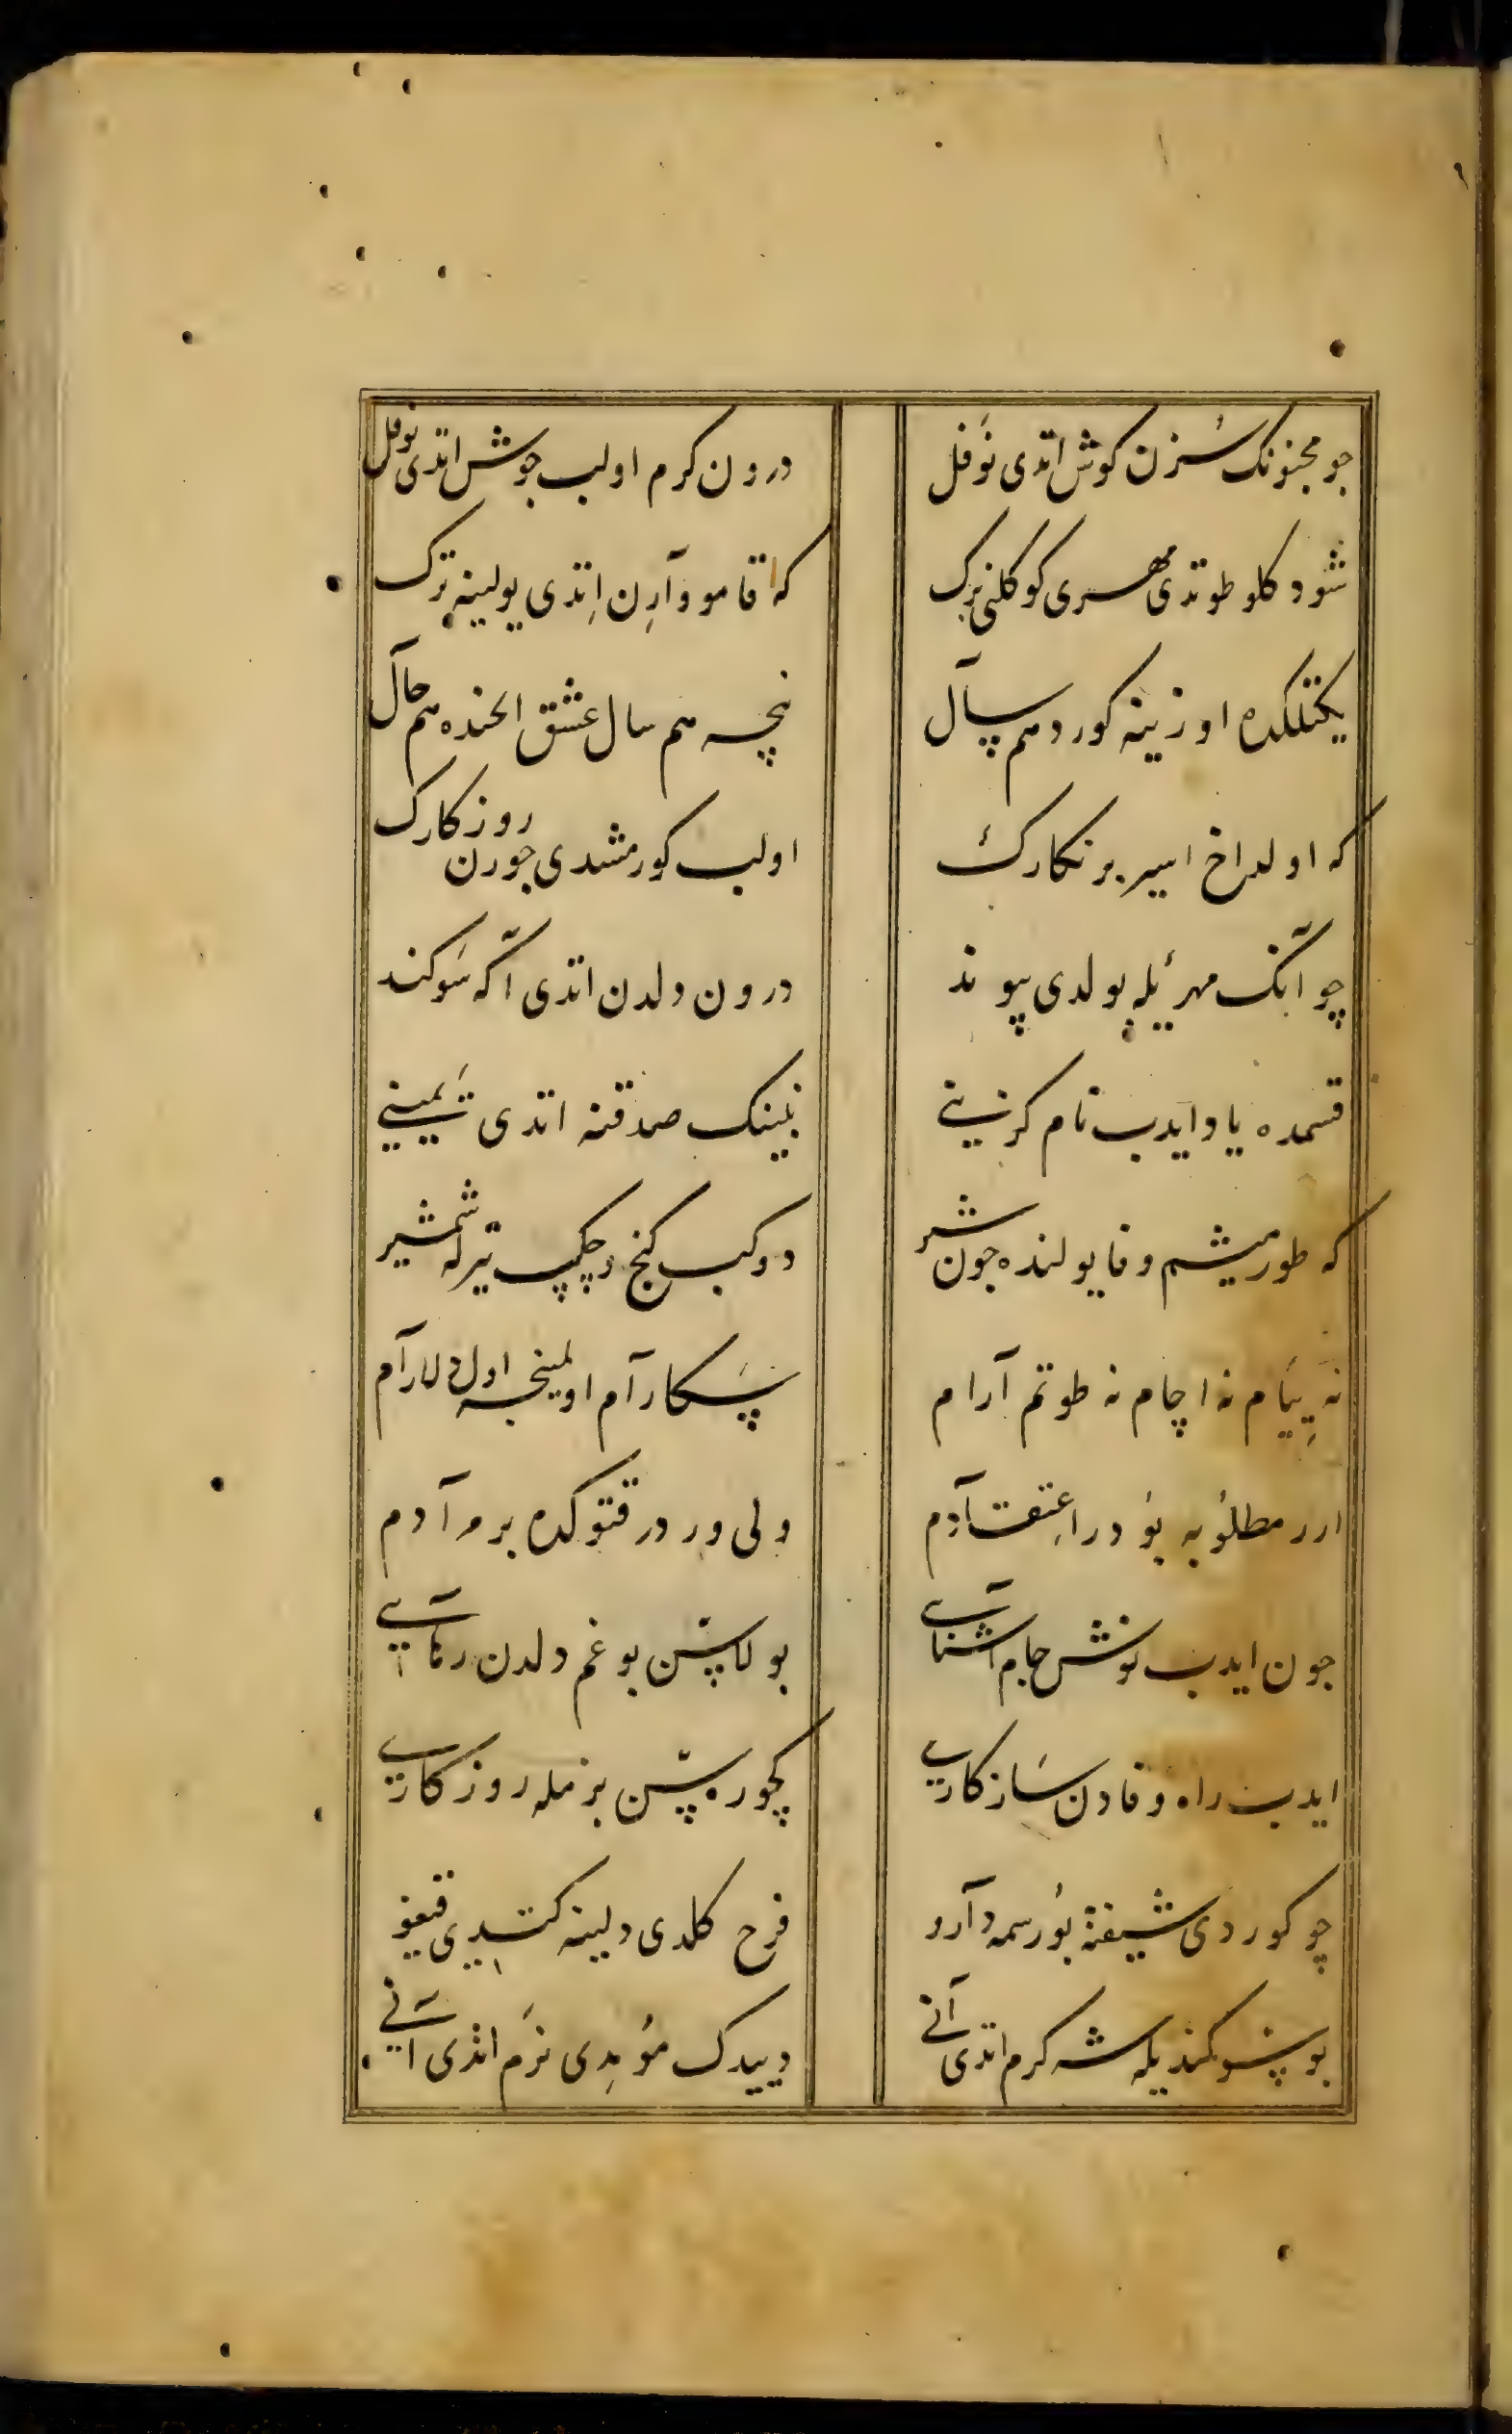 جو مجنونک سُزن کوش اتدی نَوفل
درون کرم اولب جوش اتدی نوفل
شو دکلو طوتدی مهری کوکلنی برک
که قامو وآرِن اِتدی یولینه ترک
یکتلکده اوزینه کوردهم سآل
نچه هم سال عشق الحنده هم حآل
که اولدخ اسیر بر نکارک
اولب کورمشدی جورن روزکارک
چو آنک مهرئیله بولدی پیوند
درون دلدن اتدی آکه سَوکند
قسمده یاد ایدب نام کزینے
نبینک صدقنه اتدی یَمینے
که طورمیشم وفا یولنده جون شیر
دوکب کنج و چکپ تیرله شمشیر
نه یِیَام نه اچام نه طوتم آرام
پَسکارآم اولمینجه اول دلارآم
ارر مطلوُبه بوُدر اعِتقآدم
ولی وردر قتوکده بر مرآدم
جون ایدب نوش جام اشنآیے
بولاسّن بو غم دلدن رهآیے
ایدب راه وفادن سَازکاریے
کچوره سّن بزمله روزکاریے
چو کوردی شیفته بوُرسمه دآرو
فرح کلدی دلینه کتدیِ قیغو
بو سوکندیله شه کرم اتدی آنے
دییدک موُمِدی نرَم اتدی آنے